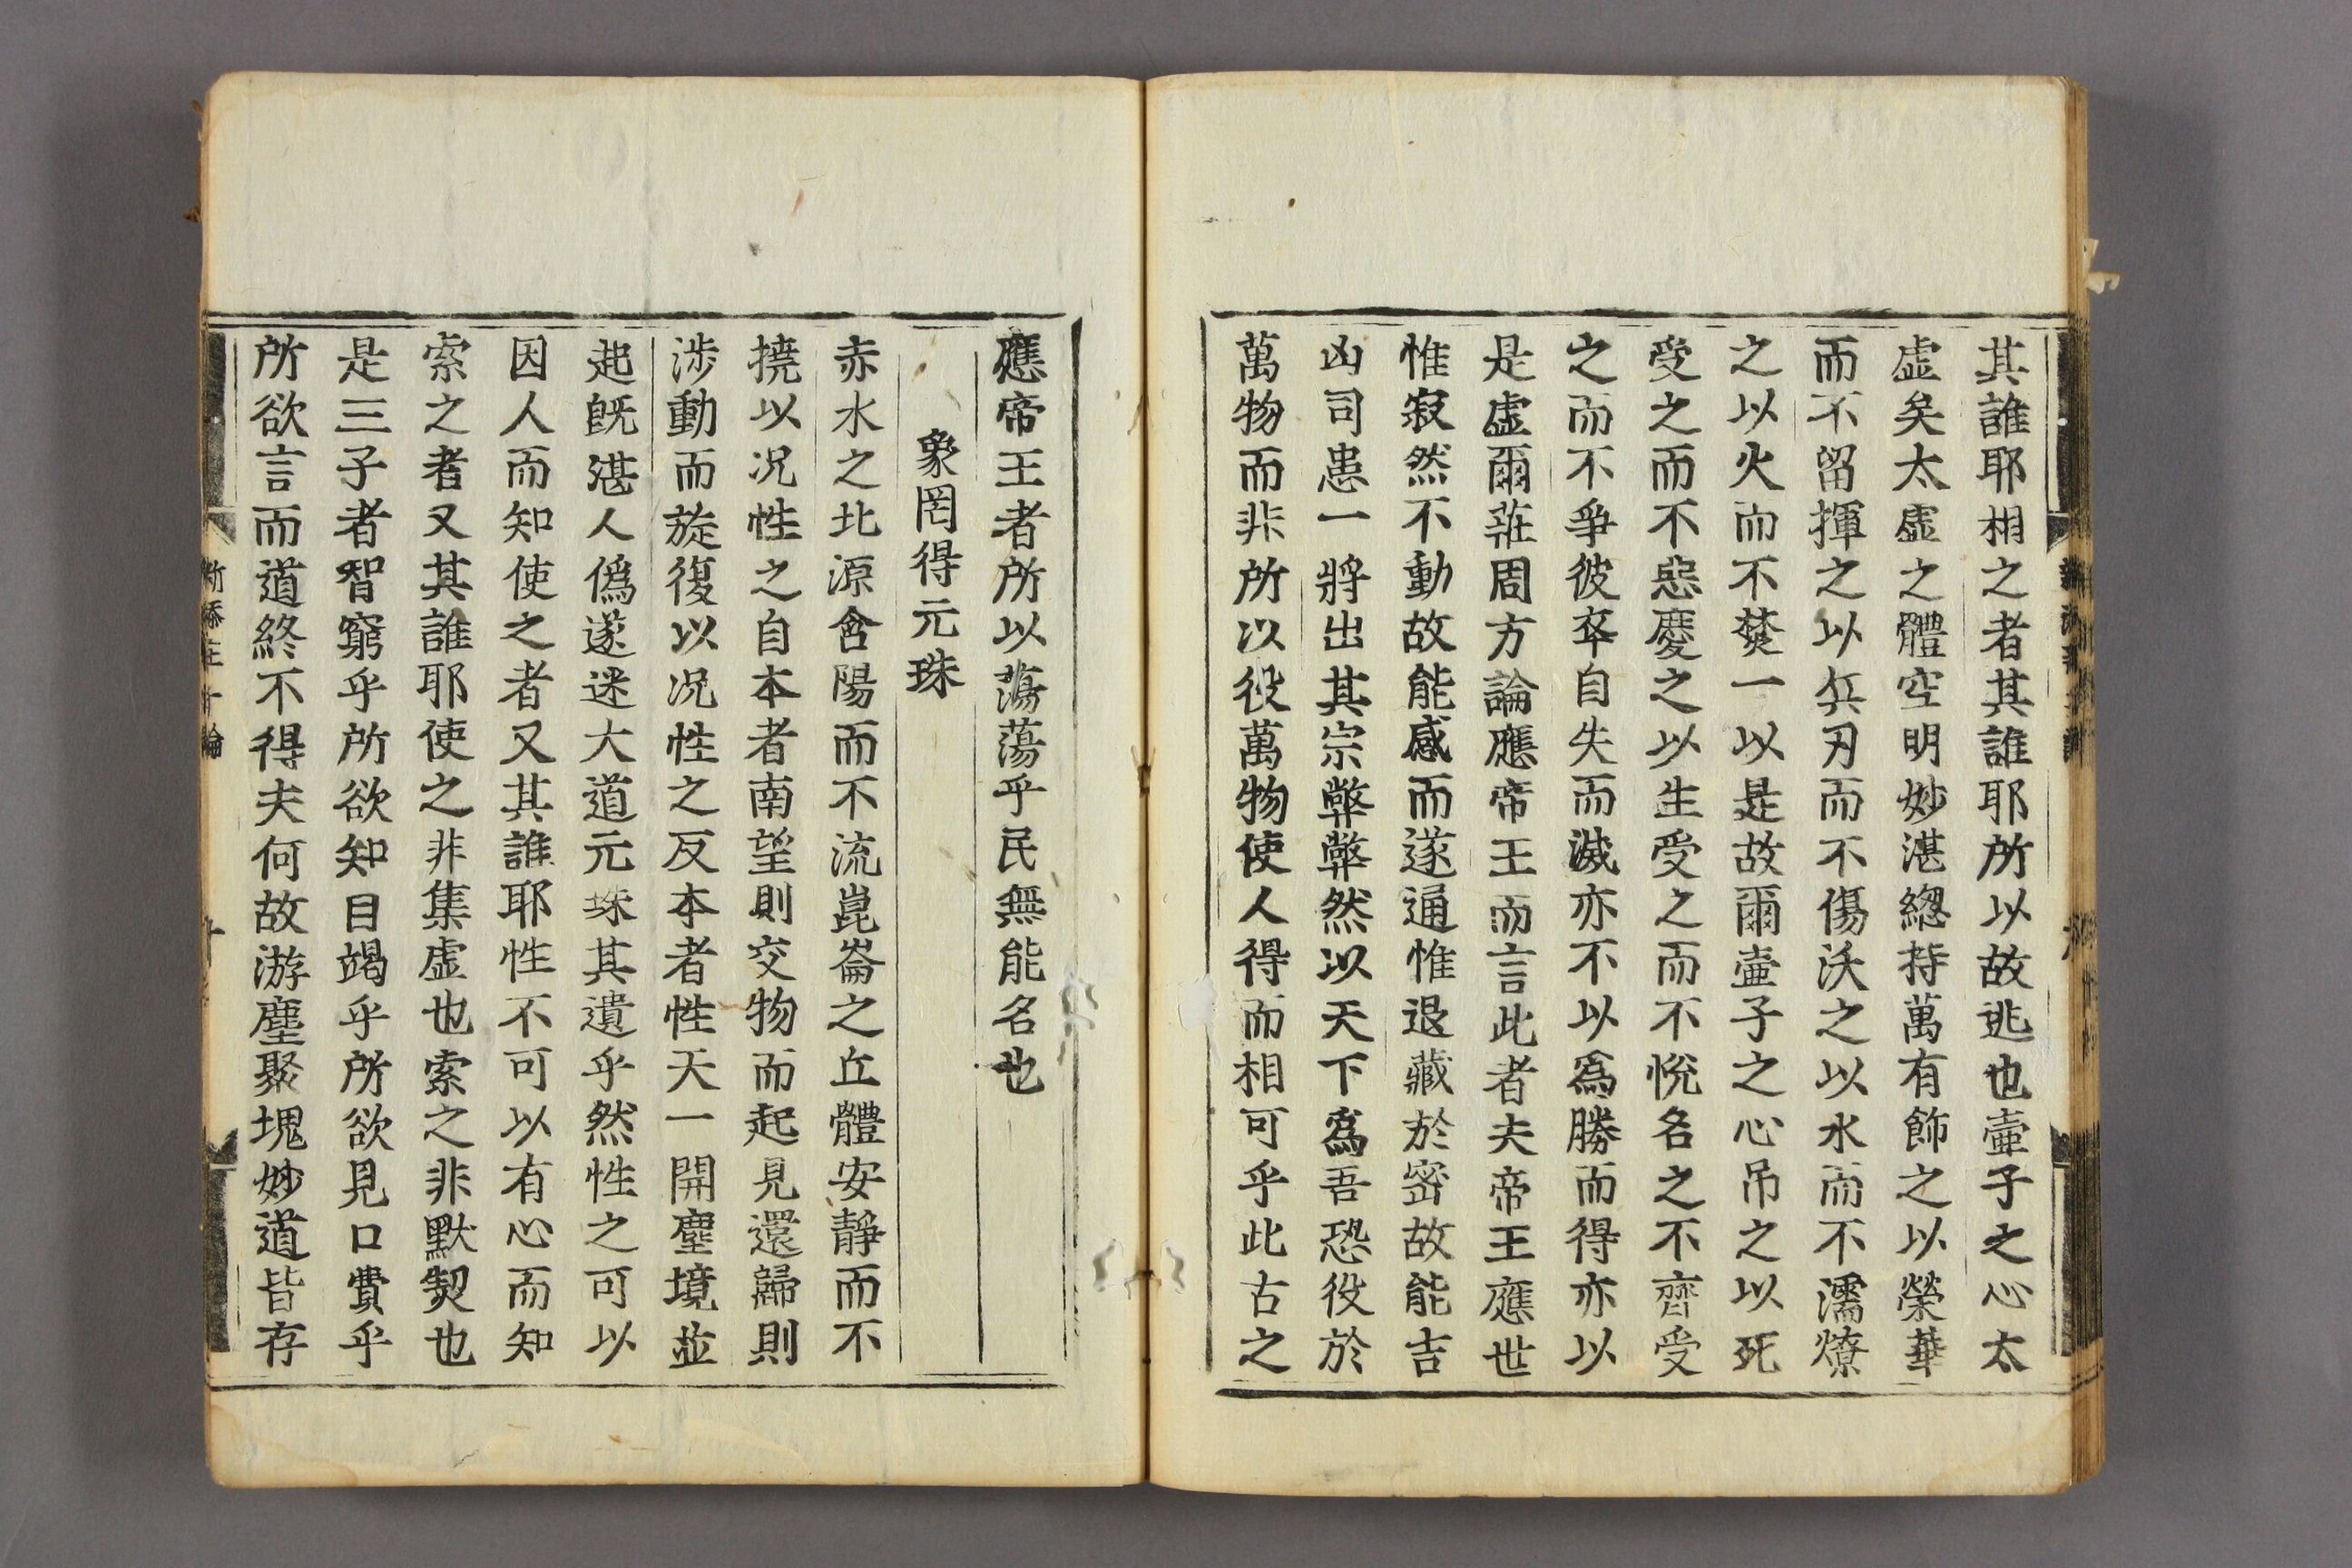 其誰耶相之者其誰耶所以故逃也壷子之心太
虚矣太虚之體空明妙湛緫持萬有飾之以榮華
而不留揮之以兵刃而不傷沃之以水而不濡燎
之以火而不焚一以是故爾壷子之心吊之以死
受之而不惡慶之以生受之而不悅名之不齊受
之而不爭彼卒自失而滅亦不以為勝而得亦以
是虚爾莊周方論應帝王而言此者夫帝王應世
惟寂然不動故能感而遂通惟退藏於密故能吉
凶司患一將出其宗弊弊然以天下爲吾恐役於
萬物而非所以役萬物使人得而相可乎此古之
應帝王者所以蕩蕩乎民無能名也
象罔得元珠
赤水之北源含陽而不流崑崙之丘體安靜而不
撓以况性之自本者南望則交物而起見還歸則
涉動而旋復以况性之反本者性天一開塵境並
起旣湛人僞遂迷大道元珠其遺乎然性之可以
因人而知使之者又其誰耶性不可以有心而知
索之者又其誰耶使之非集虚也索之非默契也
是三子者智窮乎所欲知目竭乎所欲見口費乎
所欲言而道終不得夫何故游塵聚塊妙道皆存
新添莊子十論